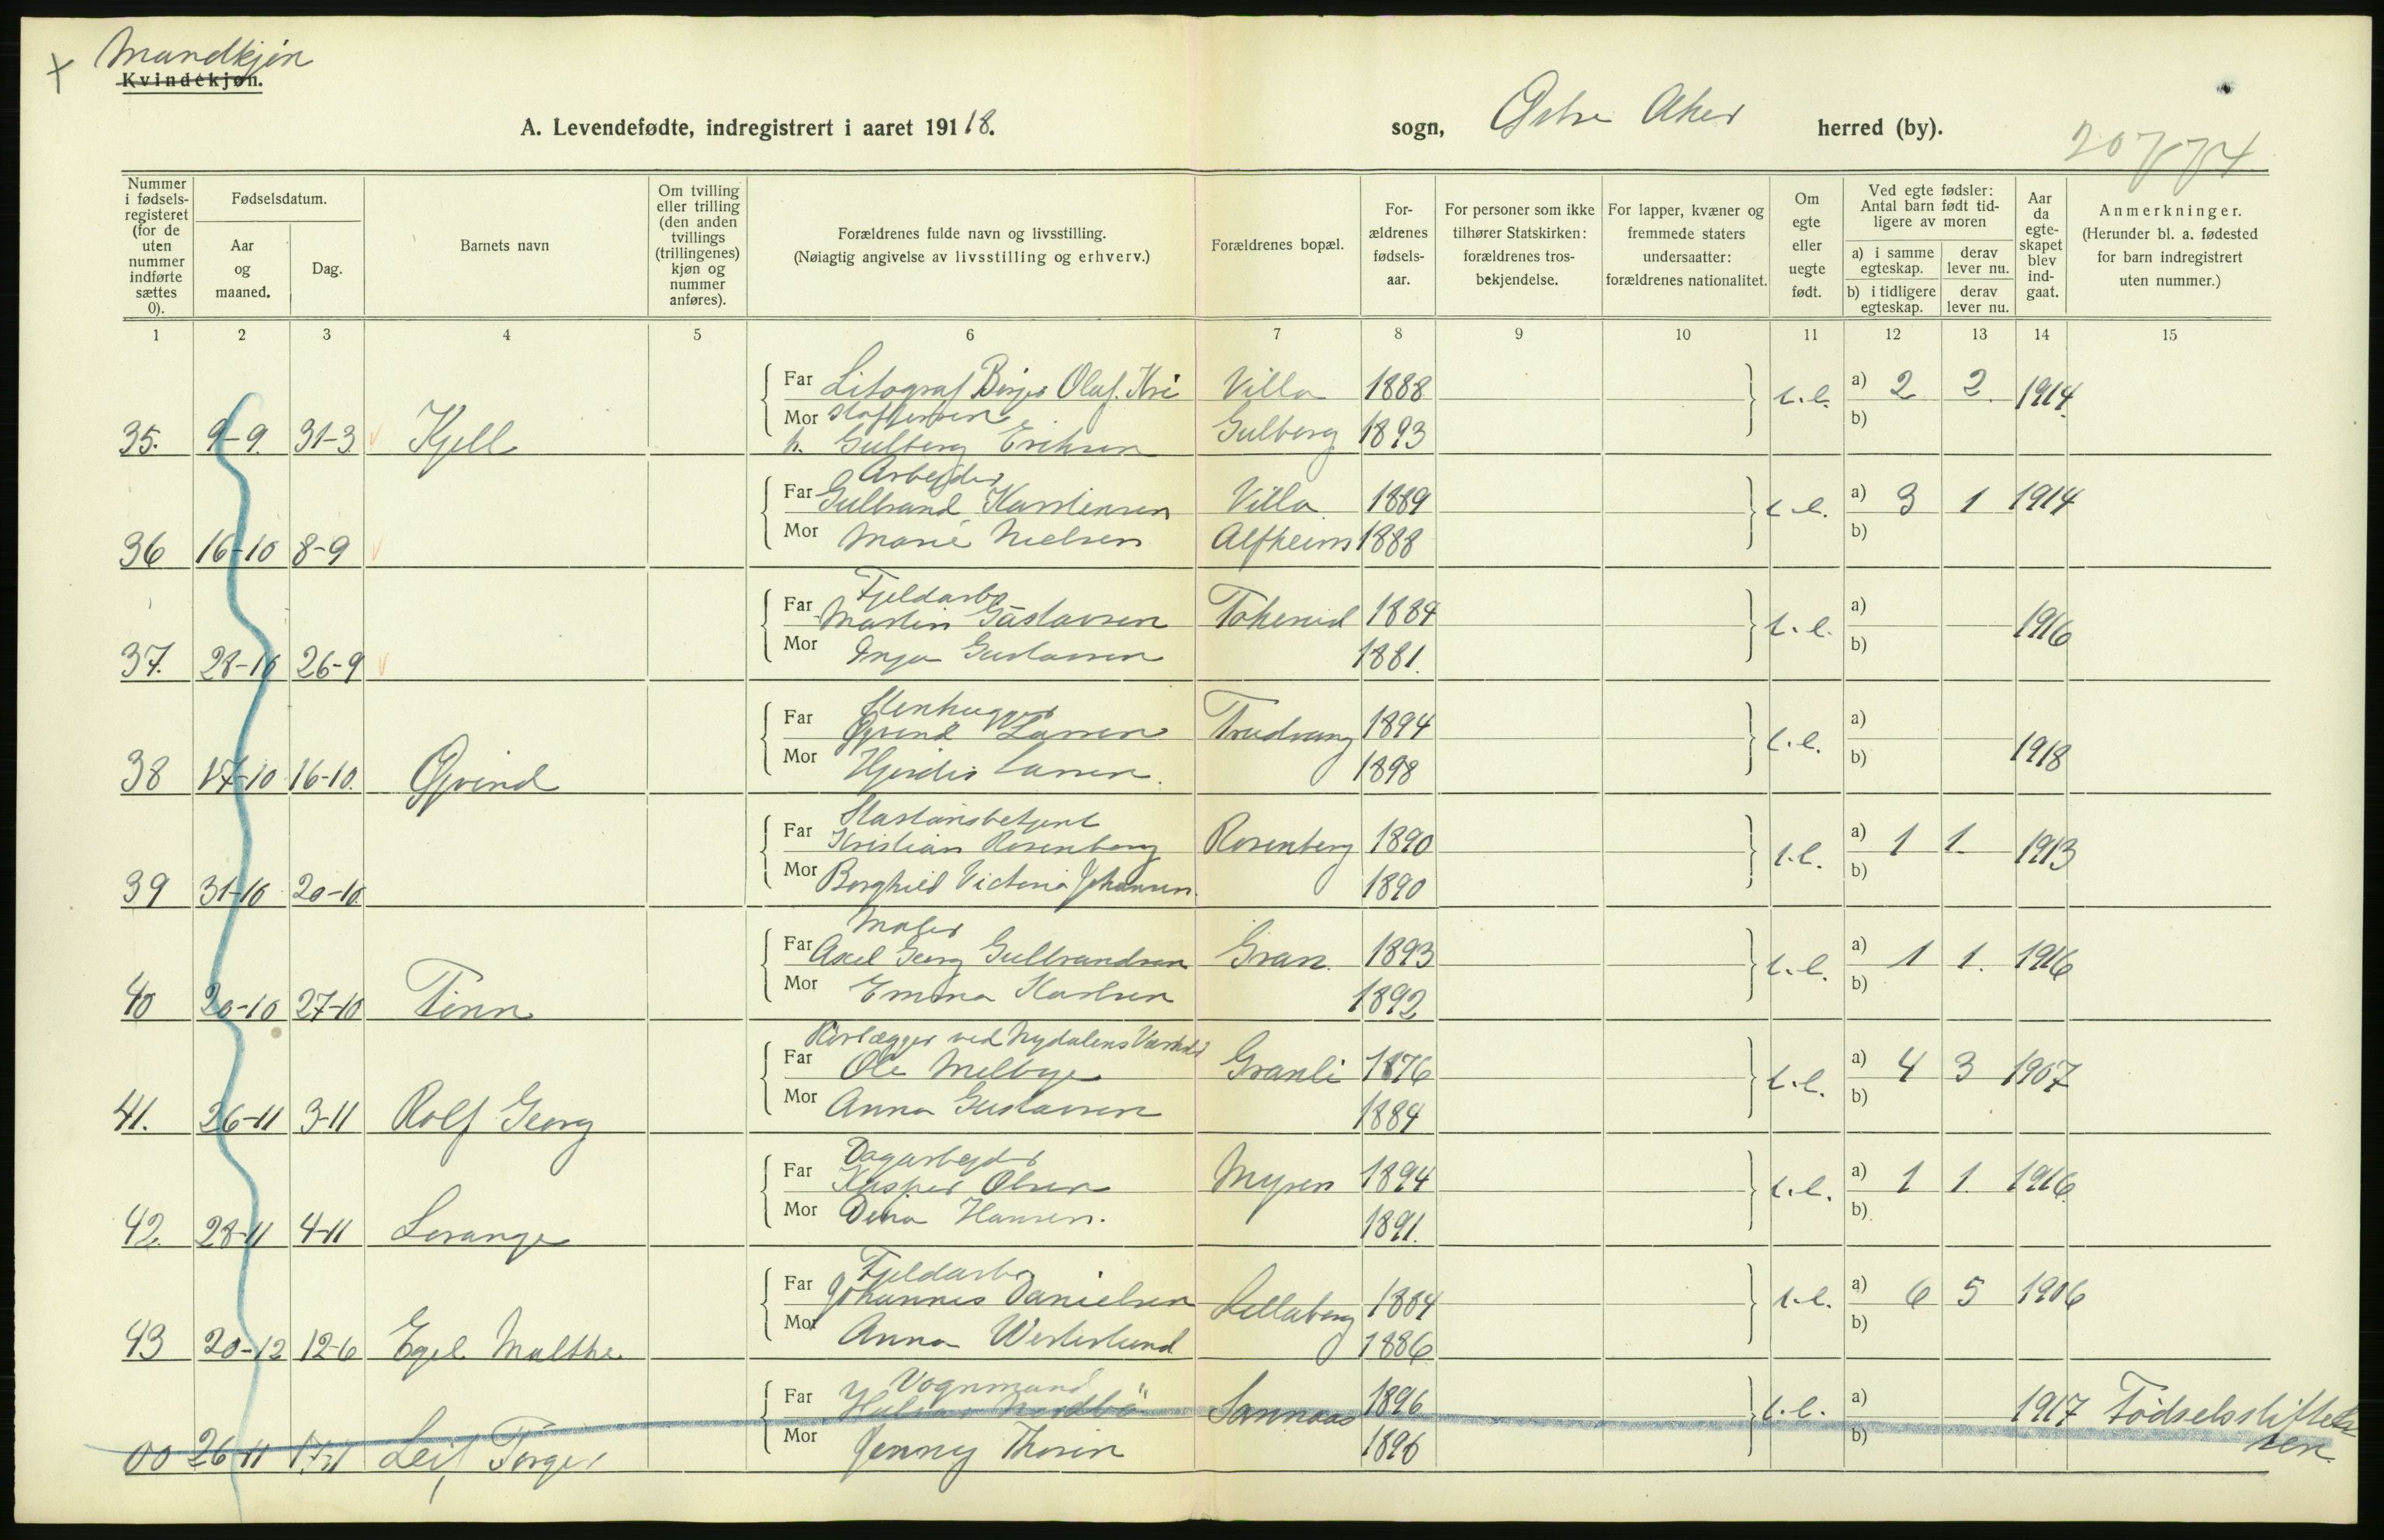 Mandkjøn
Kvindekjøn.
A. Levendefødte, indregistrert i aaret 19118.
sogn, Østre Aker herred (by).
20774
Nummer i fødselsregisteret (for de uten nummer indførte sættes 0).
Fødselsdatum.
Aar og maaned.
Dag.
Barnets navn
Om tvilling eller trilling (den anden tvillings (trillingenes) kjøn og nummer anføres).
Forældrenes fulde navn og livsstilling.
(Nøiagtig angivelse av livsstilling og erhverv.)
Forældrenes bopæl.
Forældrenes fødselsaar.
For personer som ikke tilhører Statskirken: forældrenes trosbekjendelse.
For lapper, kvæner og fremmede staters undersaatter: forældrenes nationalitet.
Om egte eller uegte født.
Ved egte fødsler: Antal barn født tidligere av moren
a) i samme egteskap.
derav lever nu.
b) i tidligere egteskap.
derav lever nu.
Aar da egteskapet blev indgaat.
Anmerkninger.
(Herunder bl. a. fødested for barn indregistrert uten nummer.)
1 2 3 4 5 6 7 8 9 10 11 12 13 14 15
Far Litograf Olaf. Kri Villa 1888
Mor stoffersen
35. 9-9. 31-3 Kjell h. Gulberg Eriksen Gulberg 1893 a) 2 2. 1914 b)
Arbeider
Far Gulbrand Karstensen Villa 1889
36 16-10 8-9 Mor Marie Nielsen Alfheim 1888 a) 3 1 1914 b)
Fjeldarb
Far Martin Gustavsen 1884
37. 28-10 26-9 Mor Inga Gustavsen 1881. a) b) 1916
Stenhugger
Far Øyvind Larsen Trudvang 1894
38 17-10 16-10. Øyvind Mor Hjørdis Larsen. 1898 a) b) 1918
Stationsbetjent
Far Kristian Rosenberg Rosenberg 1890
39 31-10 20-10 Mor Borghild Victoria Johansen. 1890 a) 1 1. 1913 b)
Maler
Far Axel Georg Gulbrandsen Gran. 1893
40 20-10 27-10 Finn Mor Emma Karlsen 1892 a) 1 1. 1916 b)
Rørlægger ved Nydalens
Far Ole Melbye Granli 1876
41. 26-11 3-11 Rolf Georg Mor Anna Gustavsen 1884 a) 4 3 1907 b)
Dagarbejder
Far Kasper Olsen Myren 1894
42. 28-11 4-11 Lorang Mor Dina Hansen. 1891. a) 1 1. 1916. b)
Fjeldarb
Far Johannes Danielsen Lilleberg 1884
43 20-12 12-6 Egil Malthe Mor Anna Westerlund 1886 a) 6 5 1906 b)
Vognmand
Far Nordbö Sannaas 1896
00 26-11 17-11 Leif Torger Mor Jenny Thorin 1896 a) b) 1917 Fødselsstiftelsen.